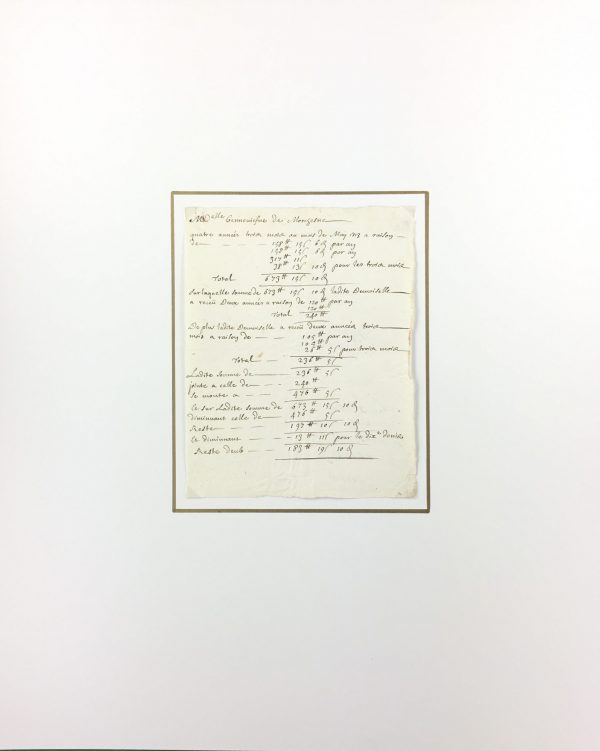 Madelle Gennevieve de
quatre années trois mois au mois de May 1713 a raison
de — 158tt 15s 6d par an
158tt 15s 6d par an
317tt 11s
38tt 13s 10d pour les trois mois
Total 673tt 15s 10d
Sur laquelle somme de 673tt 15s 10d ladite Demoiselle
a receü Deux années a raison de 120tt par an
120tt
Total 240tt
De plus ladite Demoiselle a receü deux années trois
mois a raison de — 105tt par an
105tt
26tt 5s pour trois mois
Total — 236tt 5s
Ladite somme de — 236tt 5s
jointe a celle de — 240tt
se monte a — 476tt 5s
Et sur Ladite somme de 673tt 15s 10d
diminuant celle de 476tt 5s
Reste — 197tt 10s 10d
Et diminuant — 13tt 11s pour le dixe denier
Reste deub — 183tt 19s 10d